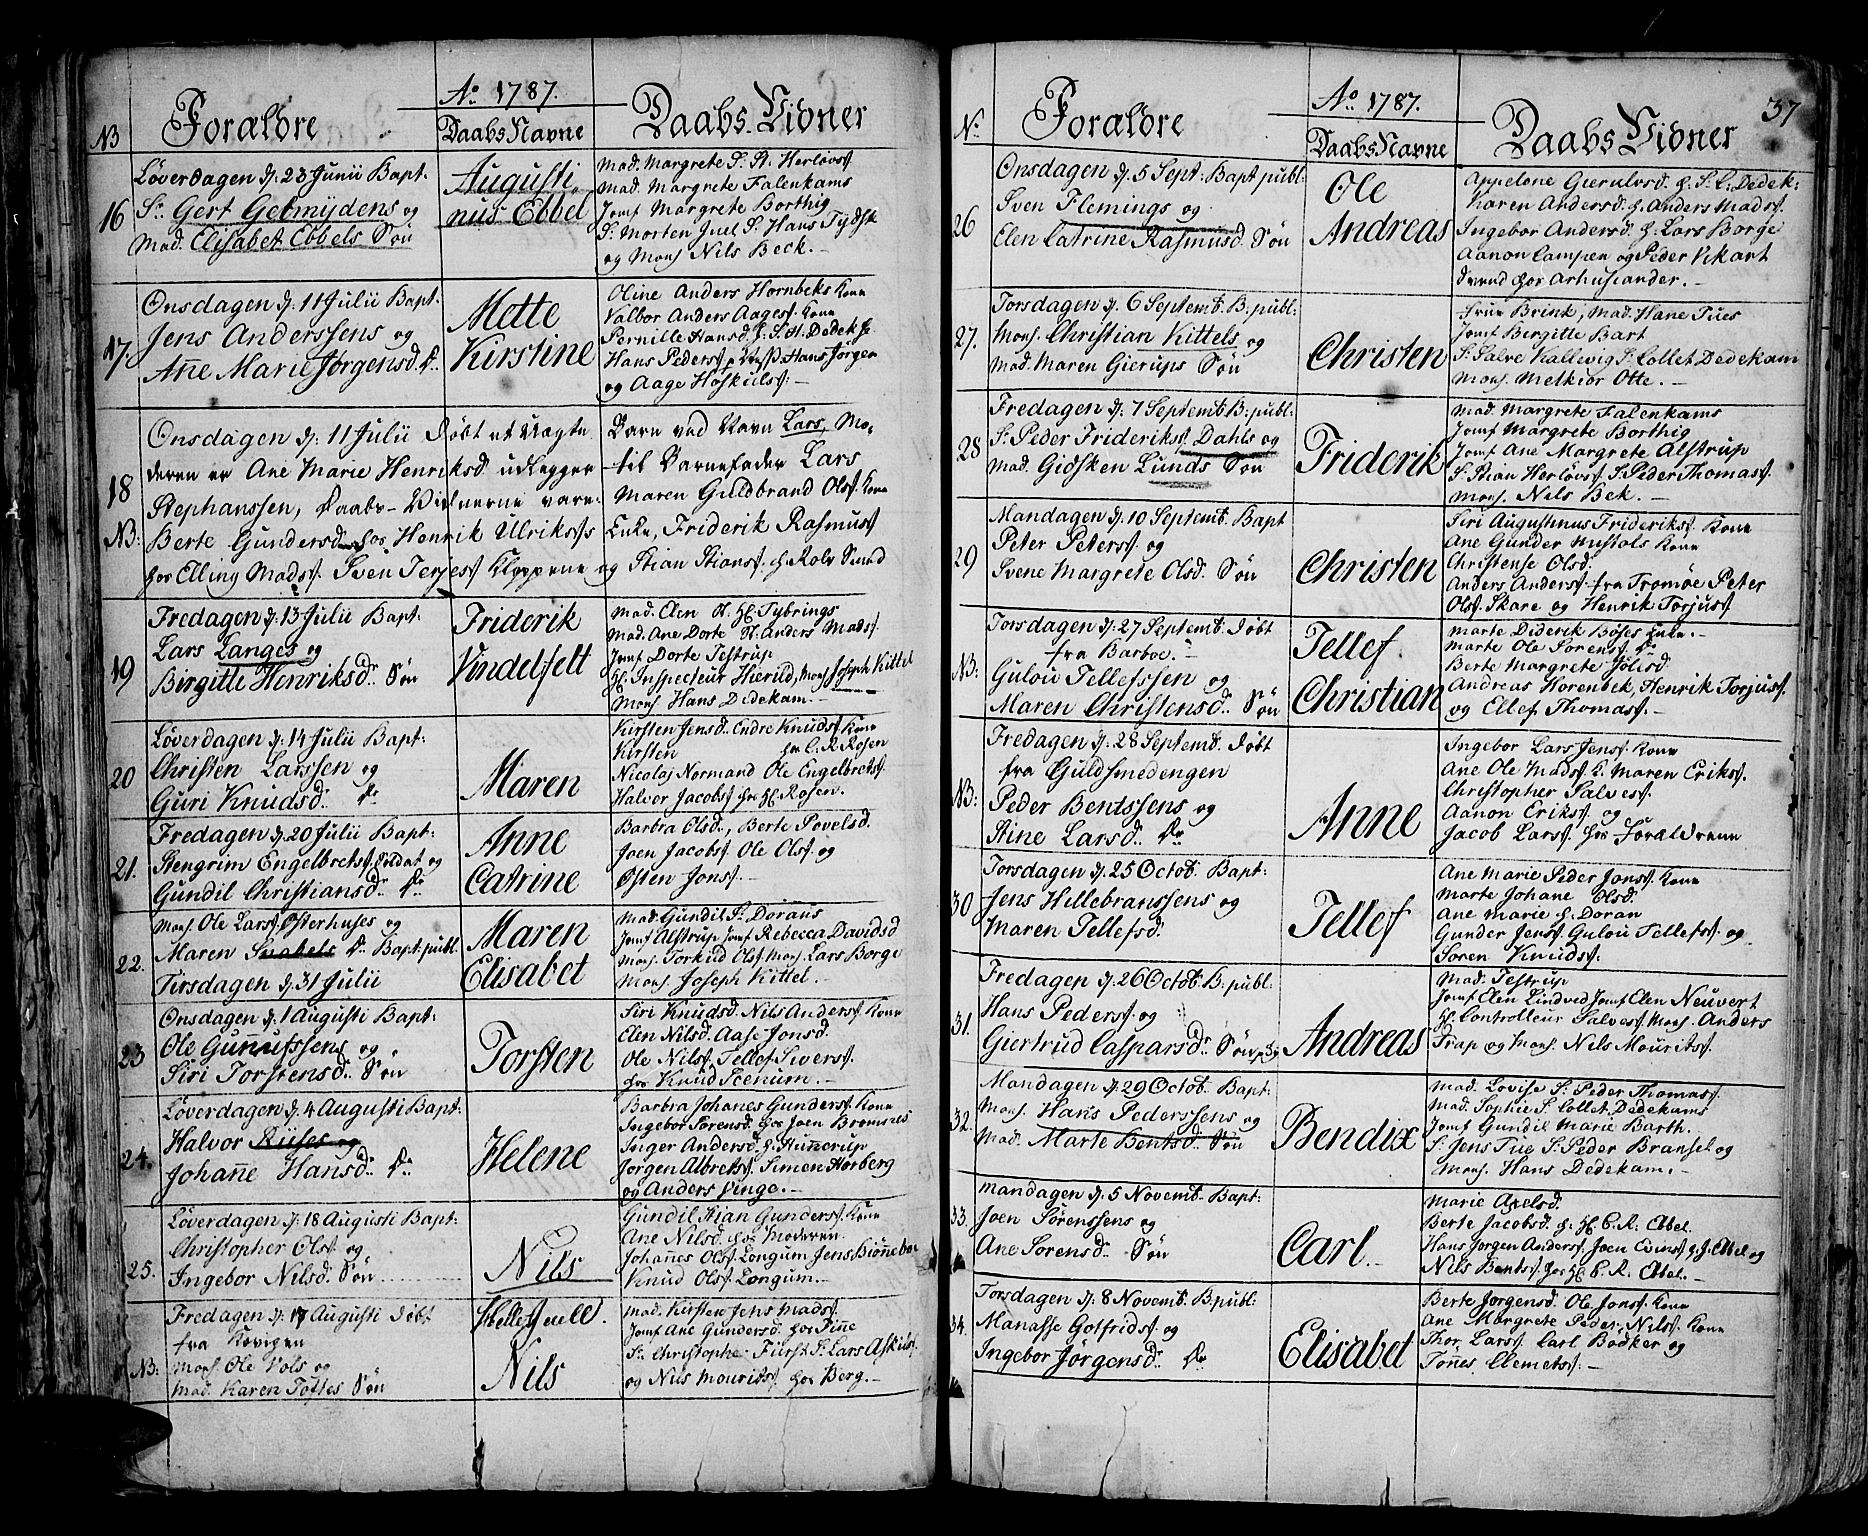 Ao. 1787.
N3 Forældre Daabs Navne Daabs. Vidner
16
Løverdagen d: 23 Junii Bapt:
Sr. Gert Gebmijdens og
Mad. Elisabet Ebbels Søn
Augusti
nus Ebbel
Mad. Margrete S: St. Herløvs.
Mad. Margrete Falenkams
Jomf Margrete Borthig
S: Morten Juel S: Hans Tydsk
og Mons Nils Beck.-
17.
Onsdagen d: 11 Julii Bapt:
Jens Anderssens og
Ane Marie Jørgensd. Dr.
Mette
Kirstine
Oline Anders Hornbeks Kone
Valbor Anders Aages. Kone
Pernille Hansd. h. S. H. Dedek
Hans Peders. Hans Jørgen
og Aage Høskuls:-
18
NB:
Onsdagen d: 11 Julii Døbt et Uægte Barn ved Navn Lars, Mo-
deren er Ane Marie Henriksd. udlegger til Barnefader Lars
Stephanssen, Daabs-Vidnerne vare: Maren Guldbrand Ols. Kone
Berte Gundersd. hos Henrik Ulriks.s Enke, Friderik Rasmus.
hos Elling Mads. Sven Terjes. Kloppene og Stian Stians. h. Rolv Smed
19
Fredagen d: 13 Julii Bapt:
Lars Langes og
Birgitte Henriksd. Søn
Friderik
Vindelfelt
Mad. Elen St. H: Tybrings
Mad. Ane Dorte St. Anders Mads.
Jomf Dorte Testrup
H: Inspecteur Hierild, Mons Joseph Kittel
Mons Hans Dedekam.-
20
Løverdagen d: 14 Julii Bapt:
Christen Larssen og
Guri Knudsd. Dr
Maren
Kirsten Jensd. Endre Knuds. Kone
Kirsten hos C. R. Rosen
Nicolaj Normand Ole Engelbrets.
Halvor Jacobs. hos H: Rosen.
21.
Fredagen d: 20 Julii Bapt:
Stengrim Engelbrets. Soldat og
Gundil Christiansd. Dr
Anne
Catrine
Barbra Olsd., Berte Povelsd.
Joen Jacobs. Ole Ols. og
Østen Jons.
22.
Mons. Ole Lars. Østerhuses og
Maren Snabels Dr. Bapt: publ
Tirsdagen d: 31 Julii
Maren
Elisabet
Mad: Gundil S: Dorans
Jomf Alstrup Jomf Rebecca Davidsd
Mons. Torkild Ols. Mons. Lars Borge
Mons. Joseph Kittel.-
23
Onsdagen d: 1 Augusti Bapt:
Ole Gunufssens og
Siri Torstensd. Søn
Torsten
Siri Knudsd. Nils Anders. Kone
Elen Nilsd. Aase Jonsd.
Ole Nils. Tellef Sivers.
hos Knud Scenum.-
24.
Løverdagen d: 4 Augusti Bapt:
Halvor Riises og
Johane Hansd. Dr
Helene
Barbra Johanes Gunders. Kone
Ingebor Sørensd. hos Joen Bromsnes
Inger Andersd. h: Hunerup
Jørgen Albreks. Simen Horberg
og Anders Vinge.-
25.
Løverdagen d: 18 Augusti Bapt:
Christopher Ols. og
Ingebor Nilsd. Søn
Nils
Gundil Stian Gunders. Kone
Ane Nilsd. hos Moderen
Johanes Ols. Longum Jens Biønebor
Knud Ols. Longum.-
NB:
Fredagen d: 17 Augusti døbt
fra Kovigen
Mons. Ole Vols og
Mad. Karen Toftes Søn
Nils
Mad. Kirsten Jens Mads.
Jomf Ane Gundersd. hos Fine
S: Christophe Fürst S: Lars Askils.
og Nils Mourits. hos Berg.-
37
Ao. 1787.
No. Forældre Daabs Navne Daabs Vidner
26
Onsdagen d: 5 Sept: Bapt publ:
Sven Flemings og
Elen Catrine Rasmusd. Søn
Ole
Andreas
Appelone Gierulvsd. h. S: C: Dedek:
Karen Andersd. h. Anders Mads.
Ingebor Andersd. h: Lars Borge
Aanon Campen og Peder Vikart
Dreng hos Arhusiander.-
27.
Torsdagen d: 6 Septemb. B: publ:
Mons. Christian Kittels og
Mad. Maren Gierups Søn
Christen
Frue Brink, Mad. Hane Tues
Jomf Birgitte Bart
S: Salve Kallevig S: Collet Dedekam
Mons. Melkior Otte.-
28
Fredagen d: 7 Septemb B: publ:
S: Peder Frideriks. Dahls og
Mad. Gidsken Lunds Søn
Friderik
Mad. Margrete Falenkams
Jomf Margrete Borthig
Jomf Ane Margrete Alstrup
S: Stian Herløvs. S: Peder Thomas.
Mons. Nils Bek.-
29
Mandagen d: 10 Septemb. Bapt
Peter Peters. og
Svene Margrete Olsd. Søn
Christen
Siri Augustinus Frideriks. Kone
Ane Gunder Hustols Kone
Christense Olsd.
Anders Anders. fra Tromøe Peter
Ols. Skare og Henrik Torjus.
NB:
Torsdagen d: 27 Septemb. døbt
fra Barboe.
Gulou Tellefssen og
Maren Christensd. Søn
Tellef
Christian
Marte Diderik Bøses Enke.-
Marte Ole Sørens. Dr
Berte Margrete Jolisd.
Andreas Horenbek, Henrik Torjus.
og Ellef Thomas.-
NB:
Fredagen d: 28 Septemb. døbt
fra Guldsmedengen
Peder Bentssens og
Stine Larsd. Dr
Anne
Ingebor Lars Jens. Kone
Ane Ole Mads. K. Maren Eriks.
Christopher Salves.
Aanon Eriks. og
Jacob Lars. hos Forældrene
30
Torsdagen d: 25 Octob. Bapt:
Jens Hillebranssens og
Maren Tellefsd.
Tellef
Ane Marie Peder Jons. Kone
Marte Johane Olsd.
Ane Marie h: Doran
Gunder Jens. Gulou Tellefs. og
Søren Knuds.
31.
Fredagen d: 26 Octob: B: publ:
Hans Peders. og
Giertrud Caspersd. Søn
Andreas
Mad. Testrup
Jomf Elen Lindved Jomf Elen Neuvert
H: Controlleur Salves. Mons. Anders
Trap og Mons. Nils Mourits.
32.
Mandagen d: 29 Octob. Bapt:
Mons. Hans Pederssens og
Mad. Marte Bentsd. Søn
Bendix
Mad. Lovise S: Peder Thomas.
Mad. Sophie S: Collet Dedekams
Jomf Gundil Marie Barth.-
S: Jens Tue S: Peder Bransel og
Mons. Hans Dedekam.-
33.
Mandagen d: 5 Novemb. Bapt:
Joen Sørenssens og
Ane Sørensd. Søn
Carl.
Marie Axelsd.
Berte Jacobsd. h. H: C. R. Ebbel.
Hans Jørgen Anders. Joen Evins. h. J. Ebbel og
Nils Bents. hos H: C. R. Ebel.-
34.
Torsdagen d: 8 Novemb. B: publ:
Manasse Gotfrids. og
Ingebor Jørgensd. Dr
Elisabet
Berte Jørgensd. Ole Jons. Kone
Ane Margrete Peder Nils. Kone
Thor Lars. Carl Bødker og
Tønes Clemets.-